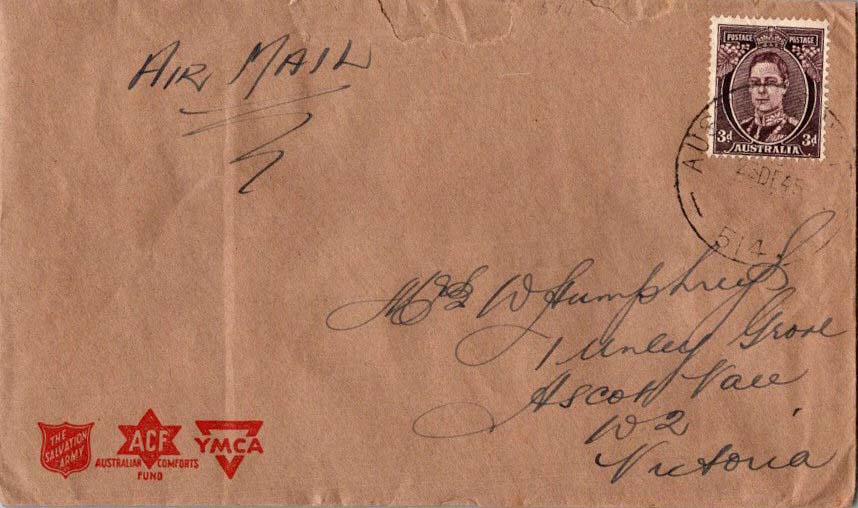 AIR MAIL
POSTAGE POSTAGE
3d 3d
AUSTRALIA
AUS
DE45
514
Mrs W Humphreys
1 Unley Grove
Ascot Vale
W2
Victoria
THE SALVATION ARMY
ACF
AUSTRALIAN COMFORTS
FUND
YMCA